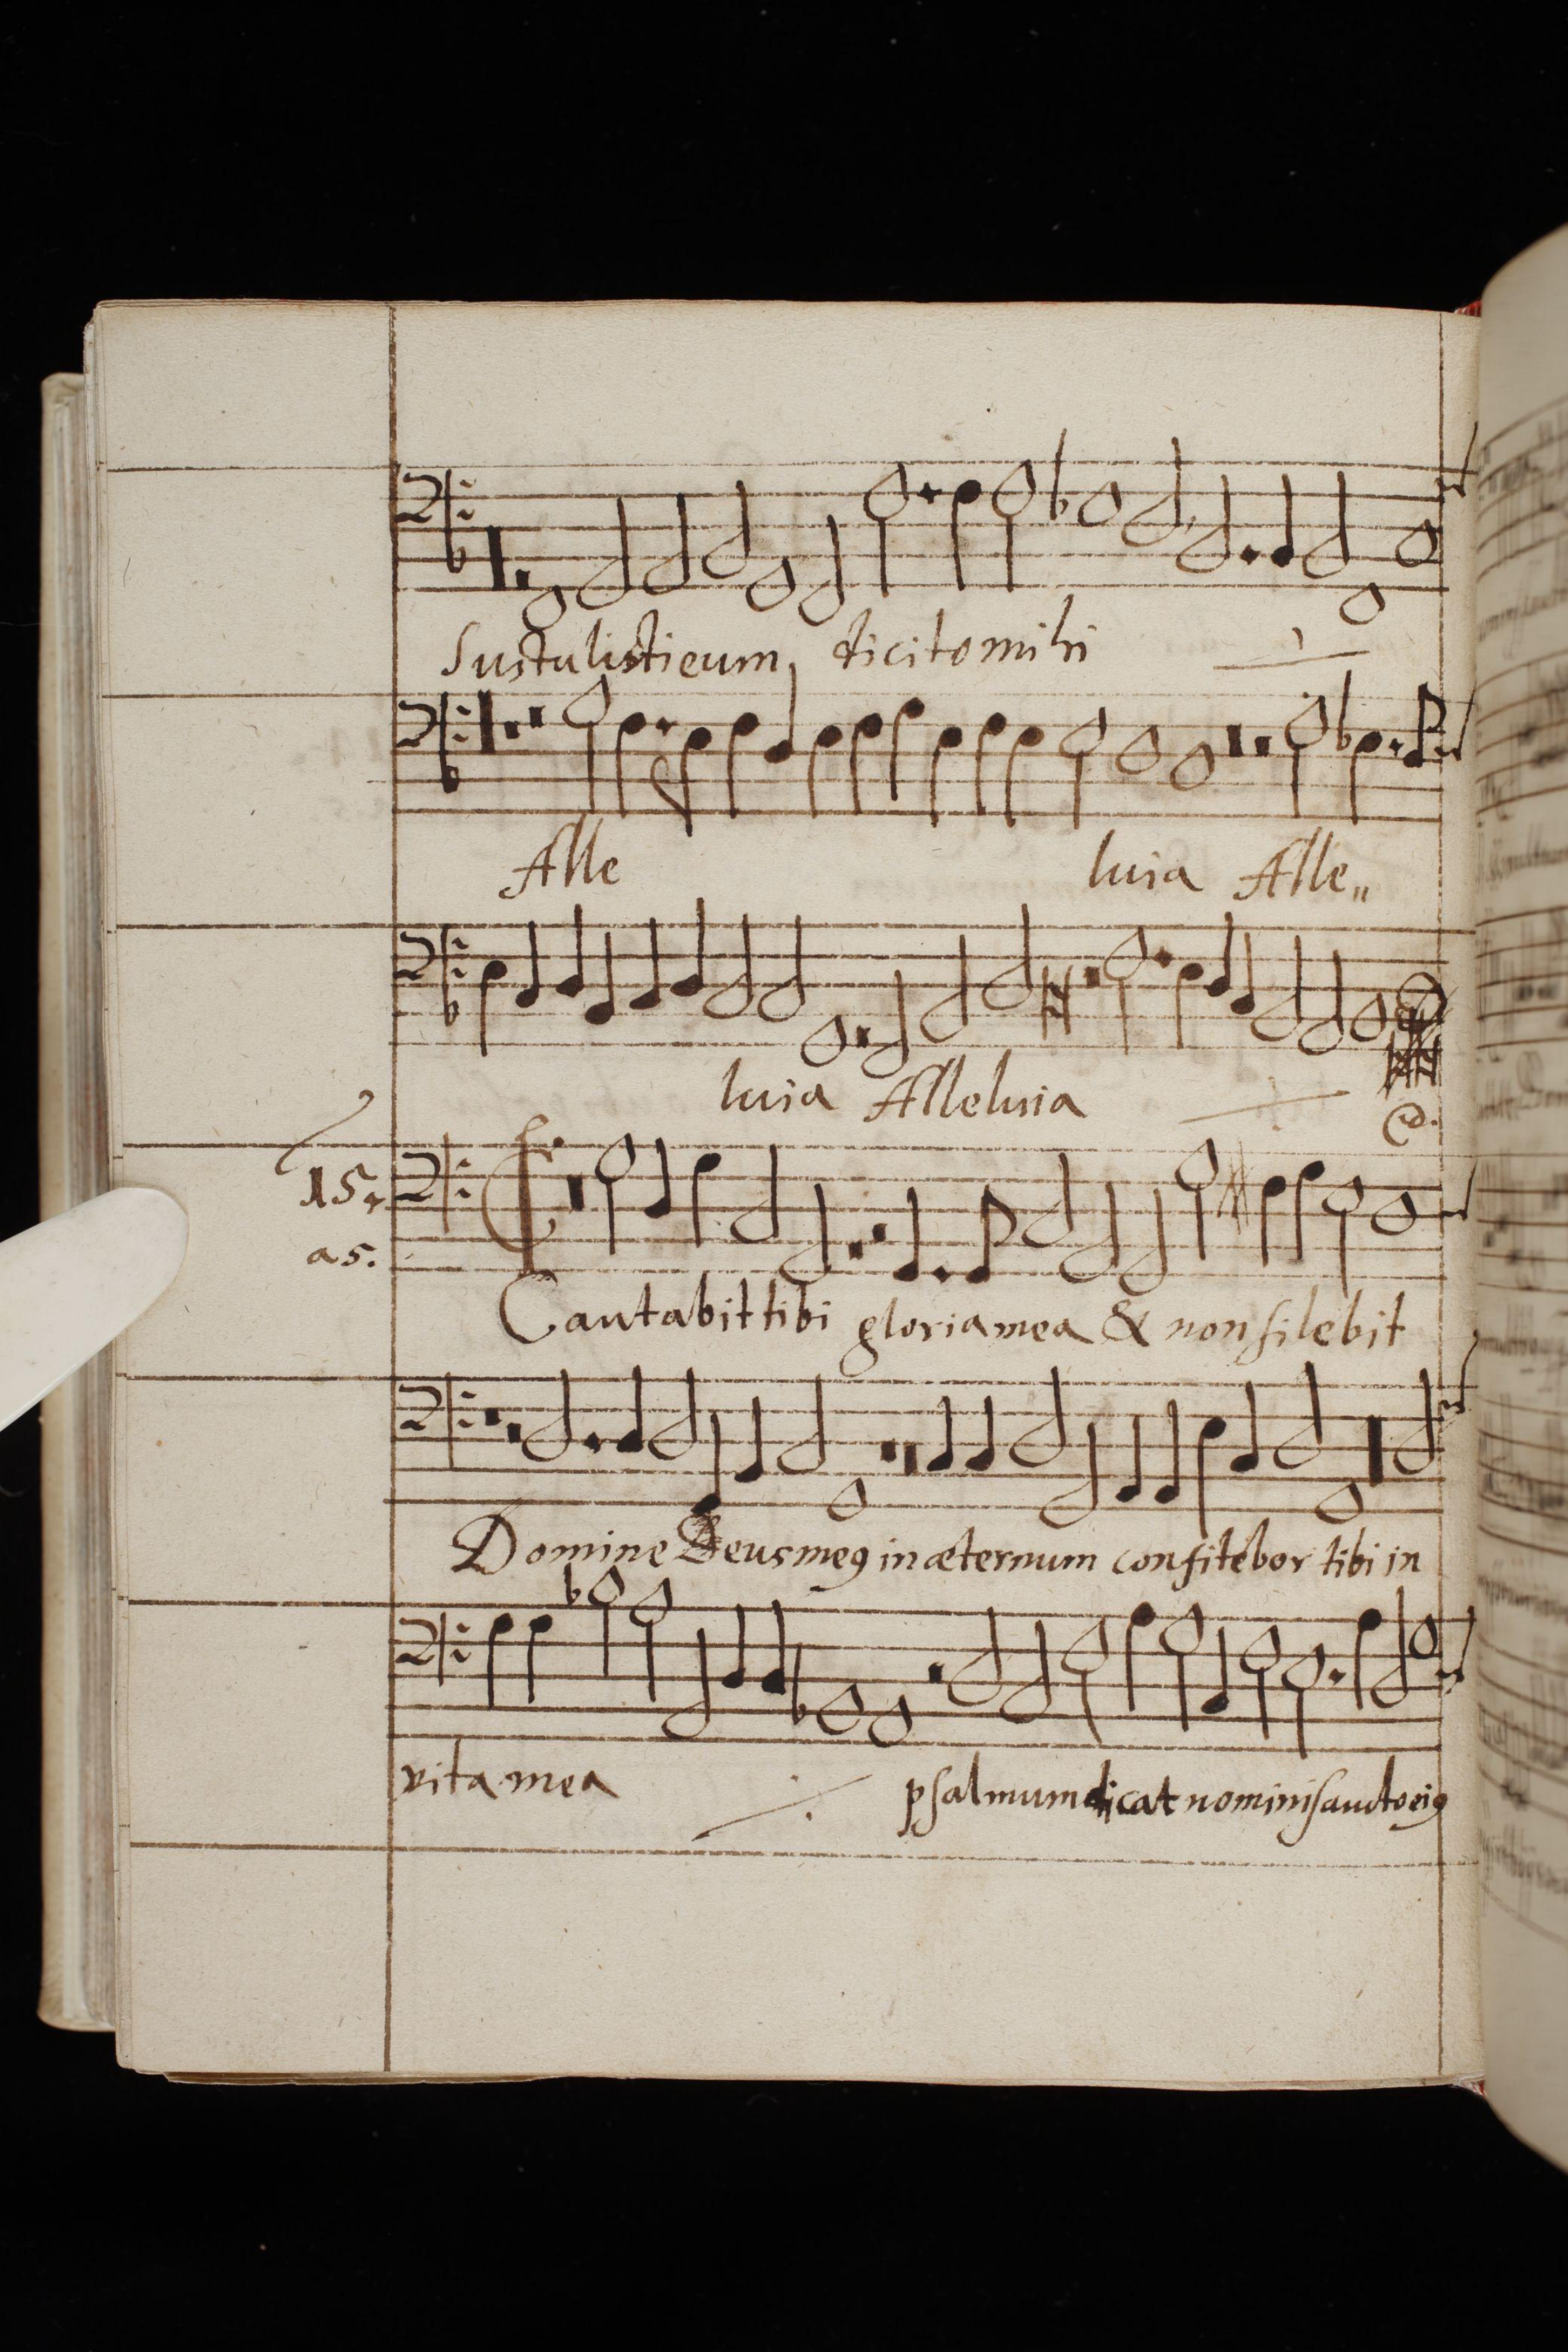 Sustulisti eum, dicito mihi
Alle luia Alle„
luia Alleluia
15.
a5.
Cantabit tibi gloria mea & non silebit
Domine Deus meꝰ in æternum confitebor tibi in
vita mea psalmum dicat nomini sancto eiꝰ